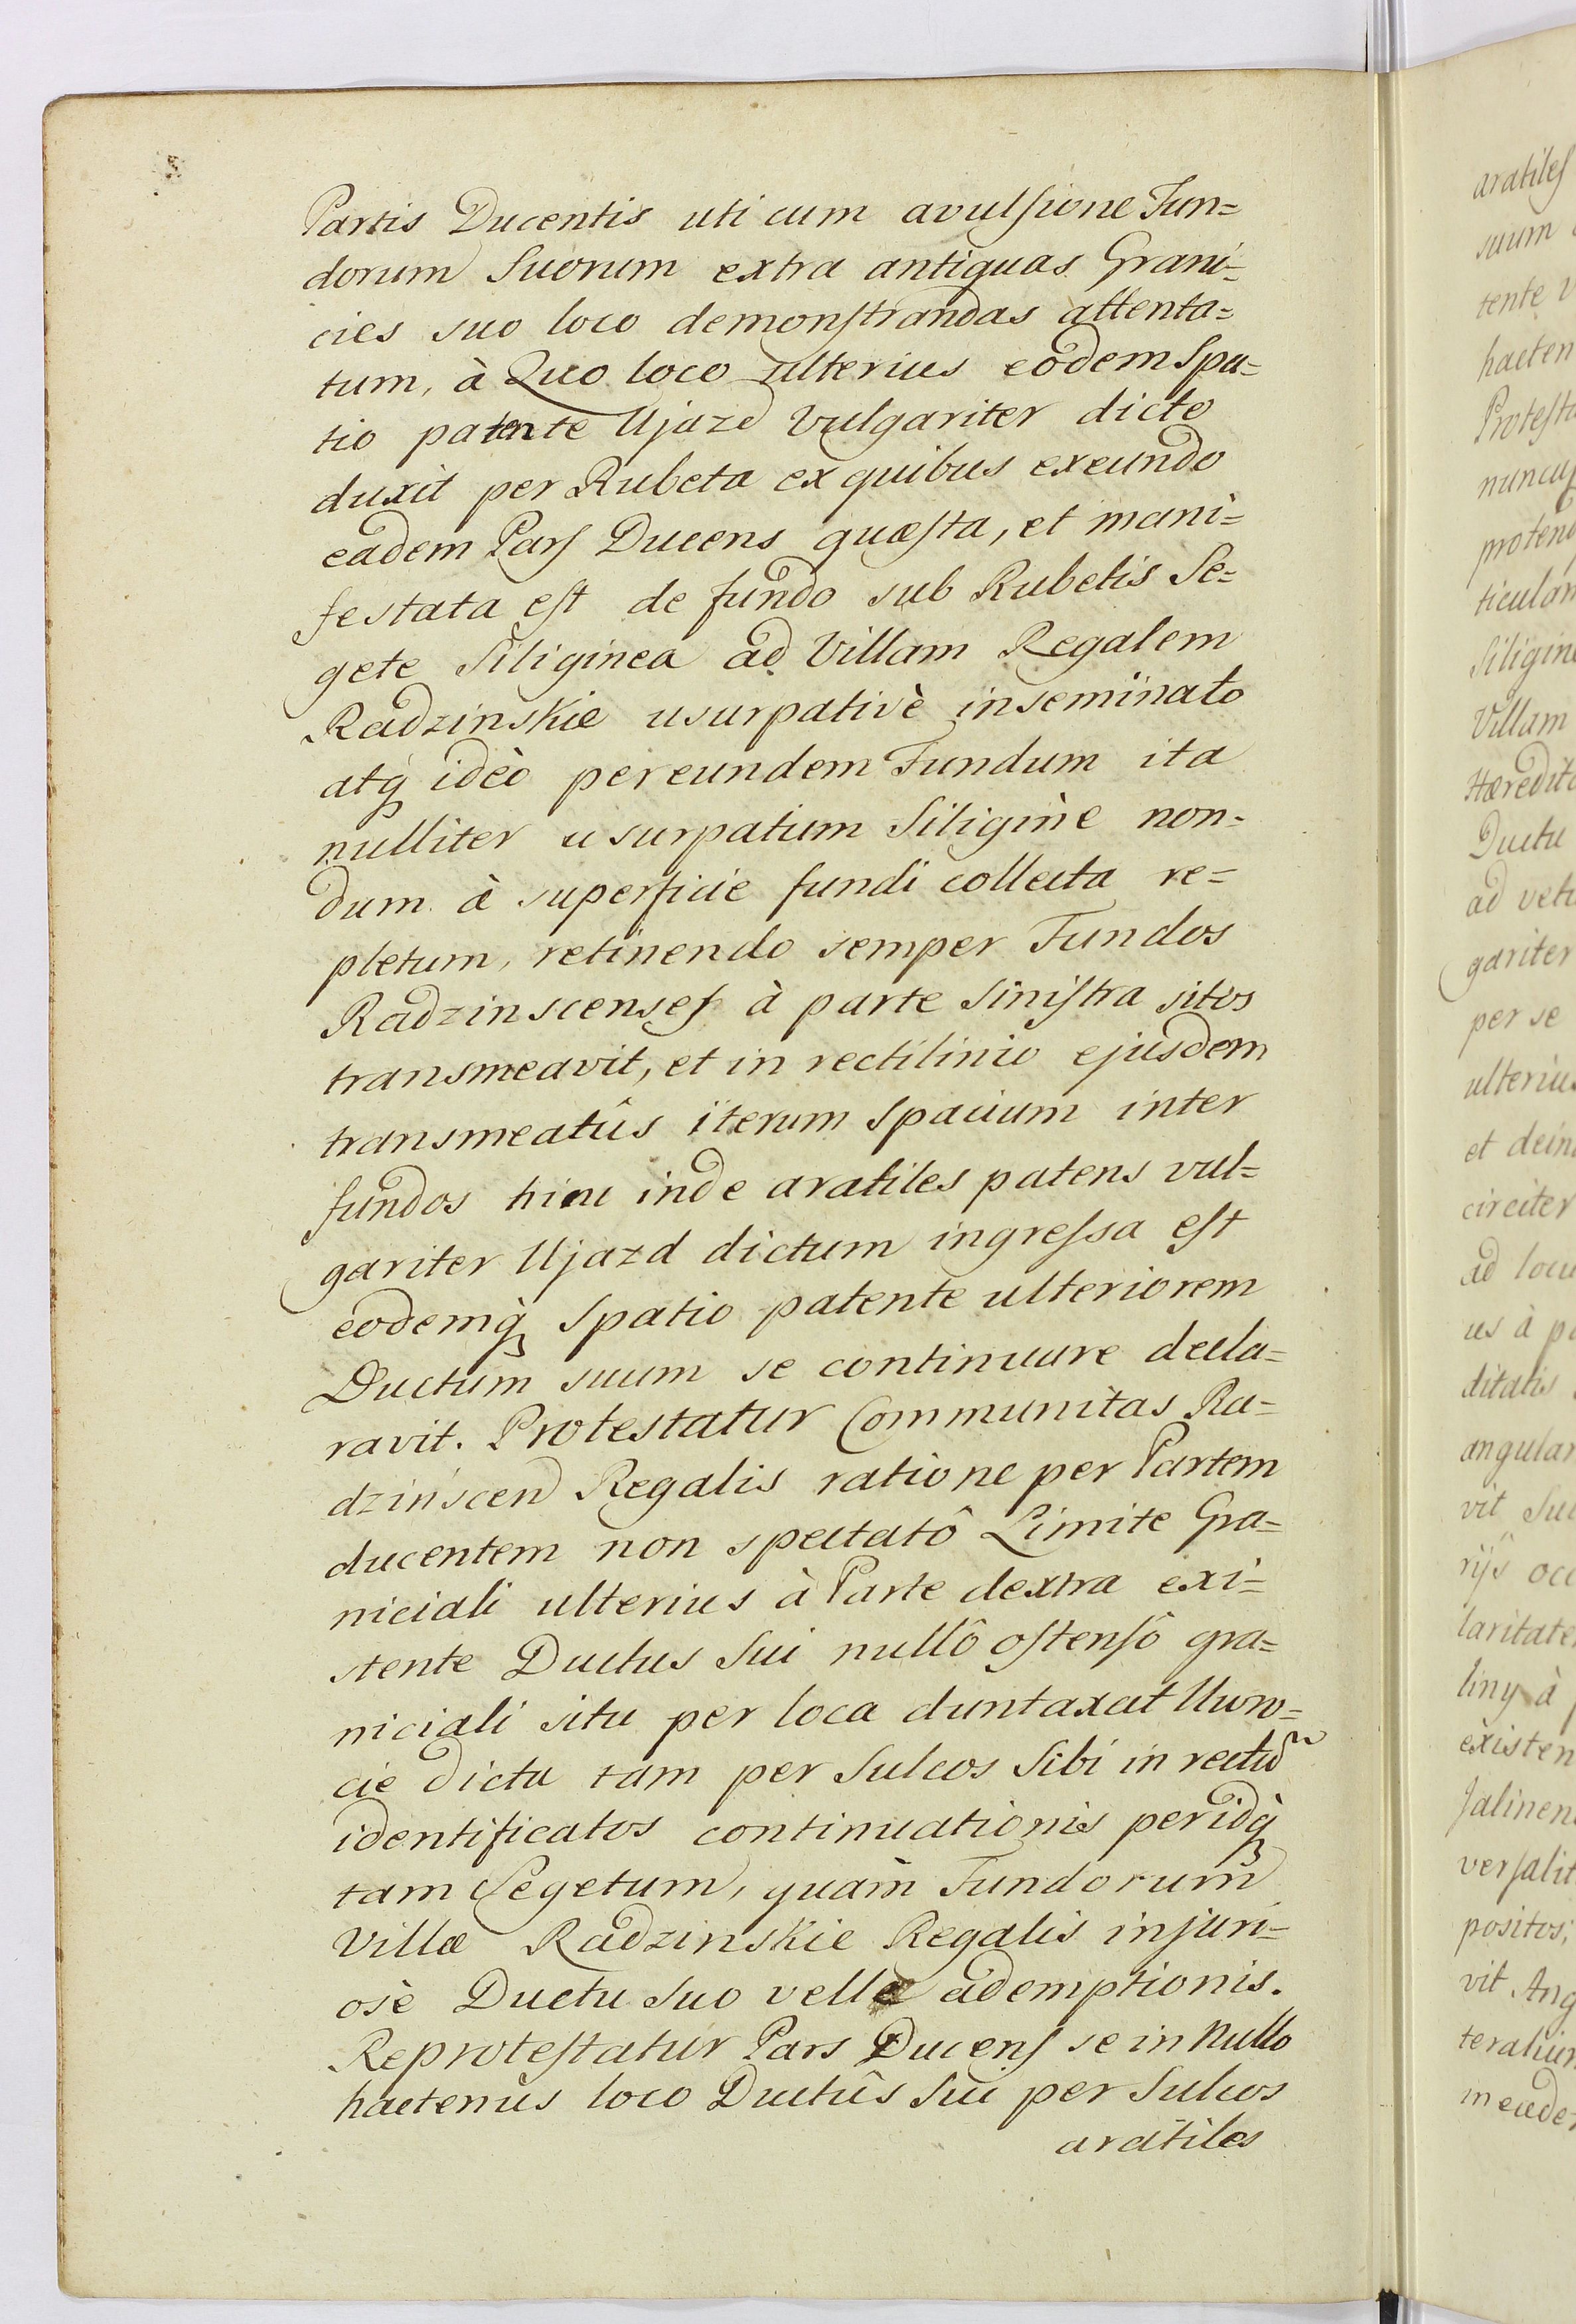 Partis Ducentis uti cum avulsione Fun=
dorum Suorum extra antiquas Grani=
cies suo loco demonstrandas attenta=
tum, à Quo loco ulterius eodem Spa=
tio patente Ujazd vulgariter dicto
duxit per Rubeta ex quibus exeundo
eadem Pars Ducens quæsta, et mani=
festata est de fundo sub Rubetis Se=
gete Siliginea ad Villam Regalem
Radzinskie usurpativè inseminato
atq ideò per eundem Fundum ita
nulliter usurpatum Siligine non=
dum à superficie fundi collecta re=
pletum, retinendo semper Fundos
Radzinscenses à parte Sinistra sitos
transmeavit, et in rectilinio ejusdem
transmeatûs iterum Spacium inter
fundos hinc inde aratiles patens vul=
gariter Ujazd dictum ingressa est
eodemq Spatio patente ulteriorem
Ductum suum se continuare decla=
ravit. Protestatur Communitas Ra=
dzinscen Regalis ratione per Partem
ducentem non spectatô Limite Gra=
niciali ulterius à Parte dextra exi=
stente Ductus Sui nullô ostensô gra=
niciali situ per loca duntaxat Uwro=
cie dicta tam per Sulcos Sibi in rectũ
identificatos continuationis per idq
tam Segetum, quàm Fundorum
Villæ Radzinskie Regalis injuri=
osè Ductu Suo velle ademptionis.
Reprotestatur Pars Ducens se in Nullo
hactenus loco Ductûs Sui per Sulcos
aratiles
aratiles
suum
tente v
hacten
Protesta
nuncup
protend
ticulan
Siligine
Villam
Hæredita
Ductu
ad vete
gariter
per se
ulterius
et dein
circiter
ad locu
us à pa
ditatis
angular
vit Su
rijs occ
laritate
liny à
existen
Jalinen
versalit
positos;
vit Ang
teralium
in eude